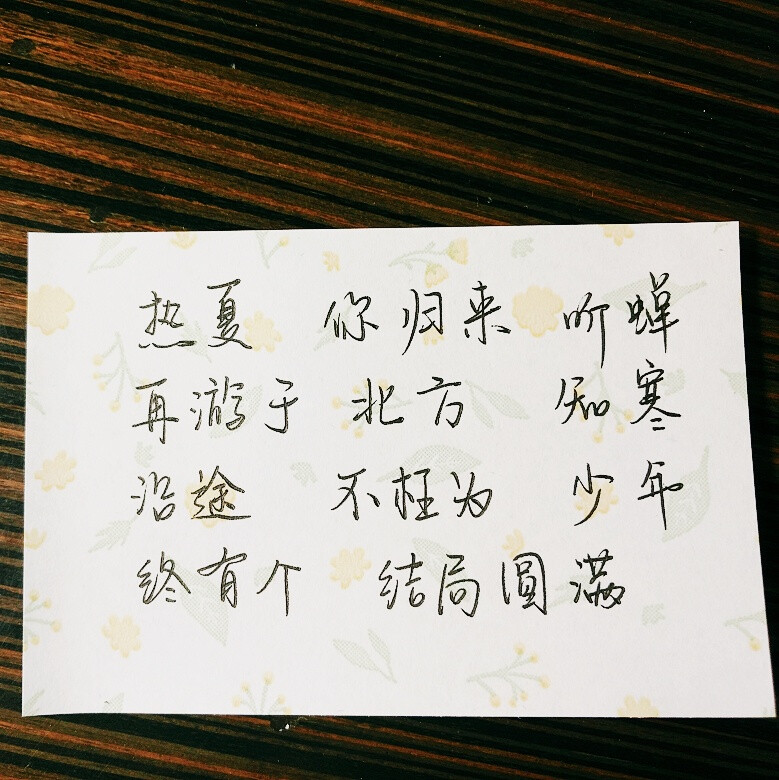 热夏 你归来 听蝉
再游于 北方 知寒
沿途 不枉为 少年
终有个 结局圆满